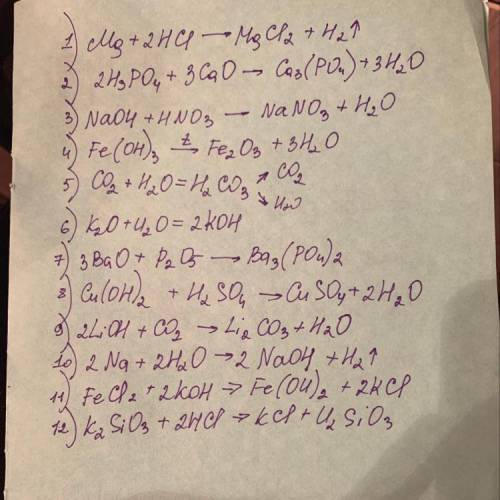 1) Mg + 2HCl → MgCl2 + H2↑
2) 2H3PO4 + 3CaO → Ca3(PO4) + 3H2O
3) NaOH + HNO3 → NaNO3 + H2O
4) Fe(OH)3 t→ Fe2O3 + 3H2O
5) CO2 + H2O = H2CO3 ↗ CO2 ↘ H2O
6) K2O + H2O = 2KOH
7) 3BaO + P2O5 → Ba3(PO4)2
8) Cu(OH)2 + H2SO4 → CuSO4 + 2H2O
9) 2LiOH + CO2 → Li2CO3 + H2O
10) 2Na + 2H2O → 2NaOH + H2↑
11) FeCl2 + 2KOH ⇒ Fe(OH)2 + 2KCl
12) K2SiO3 + 2HCl ⇒ KCl + H2SiO3